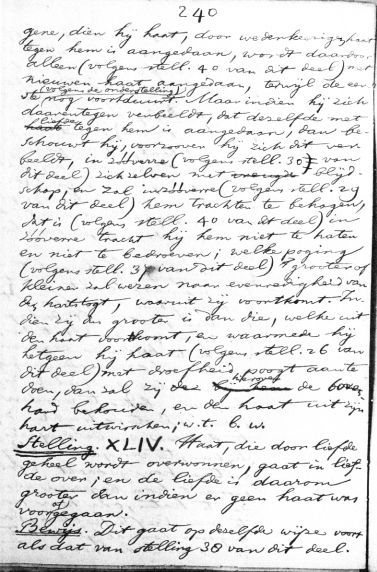 240
gene, dien hij haat, door wederkeerige haat
tegen hem is aangedaan, wordt daardoor
alleen (volgens stell. 40 van dit deel) met
nieuwen haat aangedaan, terwijl de eer-
ste (volgens de onderstelling) nog voortduurt. Maar indien hij zich
daarentegen verbeeldt, dat dezelfde met
liefde tegen hem is aangedaan, dan be-
schouwt hij, voorzooveer hij zich dit ver-
beeldt, in zóóverre (volgens stell. 30 van
dit deel) zichzelven met blijd-
schap, en zal in zóóverre (volgens stell. 29
van dit deel) hem trachten te behagen,
dat is (volgens stell. 40 van dit deel) in
zóóverre tracht hij hem niet te haten
en niet te bedroeven; welke poging
(volgens stell. 37 van dit deel) grooter of
kleiner zal wezen naar evenredigheid van
den hartstogt, waaruit zij voortkomt. In-
dien zij dus grooter is dan die, welke uit
den haat voortkomt, en waarmede hij
hetgeen hij haat (volgens stell. 26 van
dit deel) met droefheid poogt aan te
doen, dan zal zij de boven-
hand behouden, en den haat uit zijn
hart uitwisschen; w. t. b. w.
Stelling. XLIV. Haat, die door liefde
geheel wordt overwonnen, gaat in lief-
de over; en de liefde is daarom
grooter dan indien er geen haat was
voorafgegaan.
Bewijs. Dit gaat op dezelfde wijze voort
als dat van stelling 38 van dit deel.